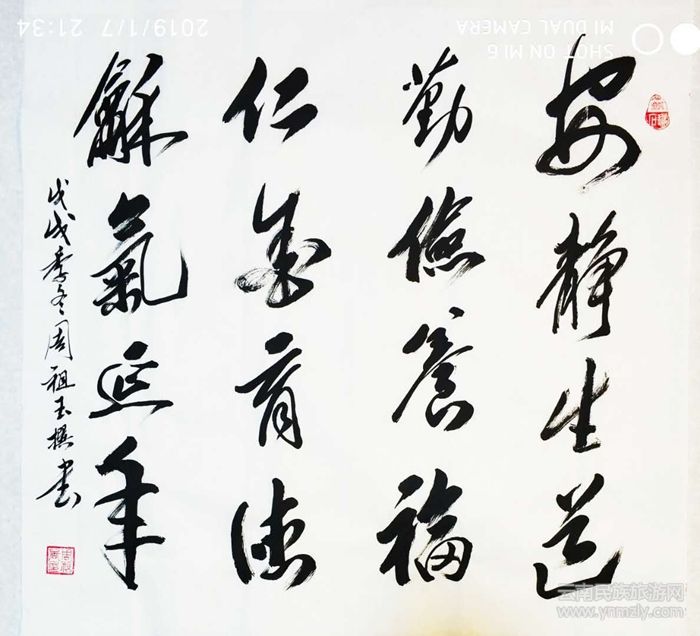 安静生道
勤儉養福
仁愛育德
龢氣延年
戊戌季冬周祖玉撰書
SHOT ON MI 6
MI DUAL CAMERA
2019/1/7 21:34
云南民族旅游网
www.ynmzly.com